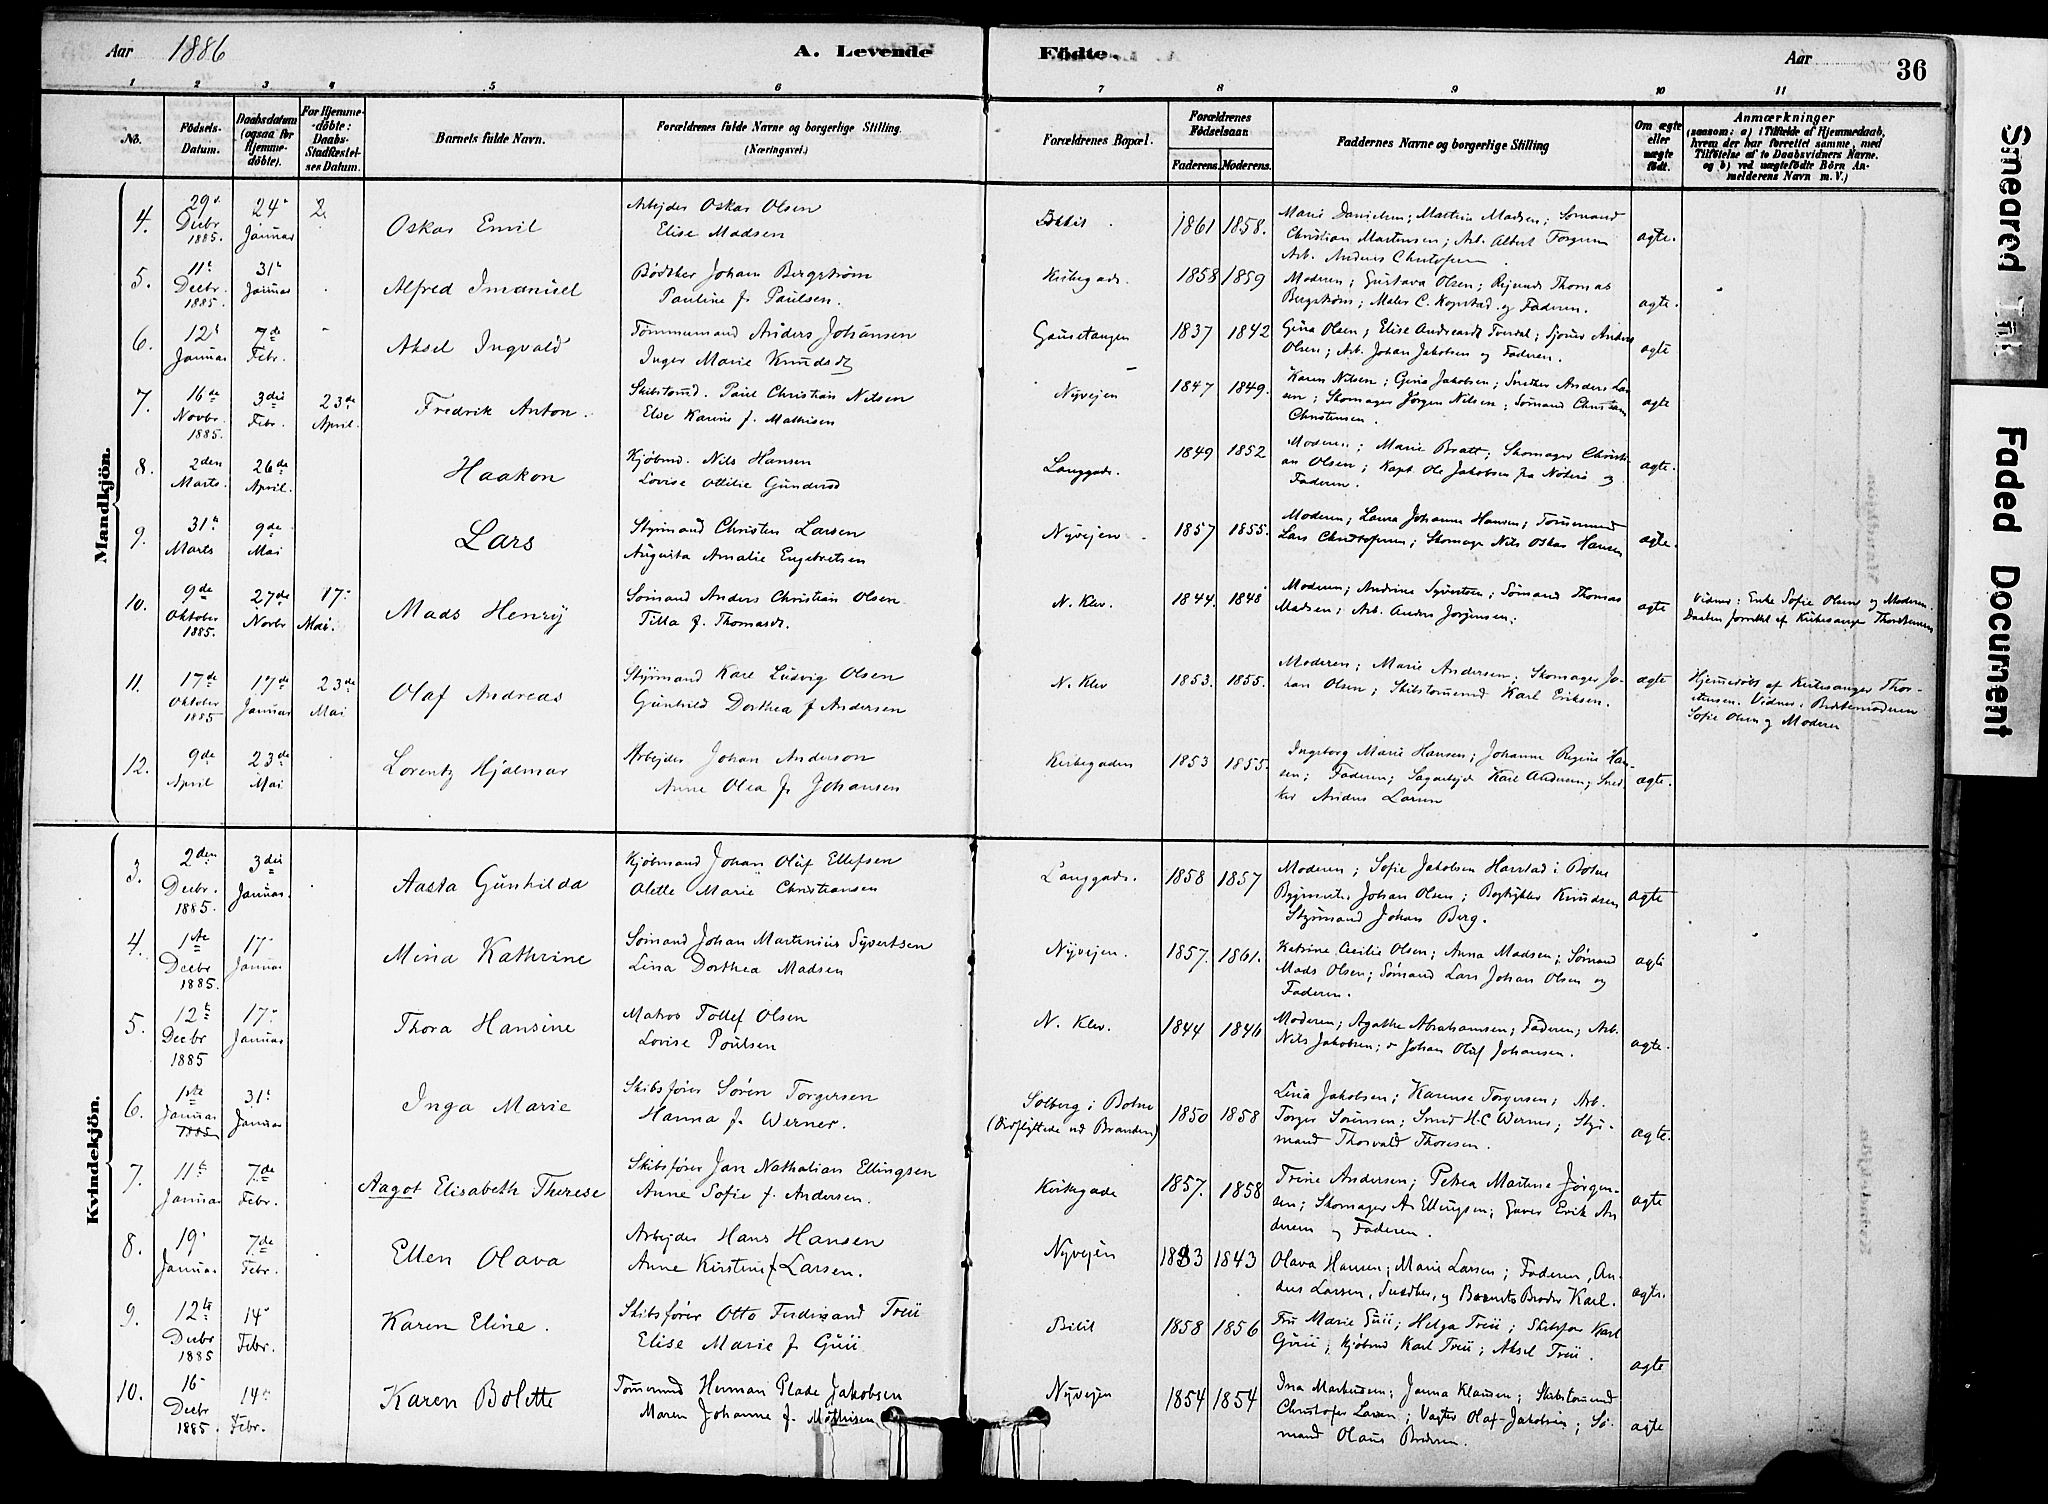 Aar 1886
A. Levende
Födte.
Aar
36
1 2 3 4 5 6 7 8 9 10 11
No.
Födsels-
Datum.
Daabsdatum
(ogsaa for
Hjemme-
döbte).
For Hjemme-
döbte:
Daabs-
Stadfæstel-
ses Datum.
Barnets fulde Navn.
Forældrenes fulde Navne og borgerlige Stilling.
(Næringsvei.)
Forældrenes Bopæl.
Forældrenes
Födselsaar.
Faderens. Moderens.
Faddernes Navne og borgerlige Stilling
Om ægte
eller
uægte
födt.
Anmærkninger
(saasom: a) i Tilfælde af Hjemmedaab,
hvem der har forrettet samme, med
Tilföielse af to Daabsvidners Navne,
og b) ved uægtefödte Börn An-
melderens Navn m. V.)
Mandkjön.
4.
29
Decbr
1885.
24
Januar
2.
Oskar Emil
Arbejder Oskar Olsen
Elise Madsen
1861 1858.
Marie Danielsen; Martin Madsen; Sømand
Christian Martensen; Arb. Albert
Arb. Anders
ægte.
5.
11
Decbr.
1885.
31
Januar
Alfred Imanuel
Bødtker Johan Bergstrøm
Pauline f. Paulsen.
Kirkegade.
1858 1859
Moderen; Gustava Olsen; Thomas
Bergstrøm; Maler C. og Faderen.
ægte.
6.
12
Januar
7de
Febr.
Aksel Ingvald
Tømmermand Anders Johansen
Inger Marie Knudsdt
Gaustangen
1837 1842
Gina Olsen; Elise Andreasdt
Olsen; Arb. Johan Jakobsen og Faderen.
ægte
7.
16de
Novbr.
1885.
3die
Febr.
23de
April.
Fredrik Anton.
Skibstømd. Paul Christian Nilsen
Else Karine f. Mathisen
Nyvejen
1847 1849.
Karen Nilsen; Gina Jakobsen; Snedker Anders Lar
sen; Skomager Jørgen Nilsen; Sømand Christian
Christensen.
ægte
8.
2den
Marts.
26de
April.
Haakon
Kjøbmd. Nils Hansen
Lovise Ottilie Gundersd
Langgade.
1849 1852
Moderen; Marie Bratt; Skomager Christi-
an Olsen; Kapt. Ole Jakobsen fra Nøterø og
Faderen.
ægte.
9.
31
Marts
9de
Mai
Lars
Styrmand Christen Larsen
Augusta Amalie Engebretsen
Nyvejen
1857 1855.
Moderen; Laura Johanne Hansen; Tømmermd
Lars Christofersen; Skomager Nils Oskar Hansen
ægte.
10.
9de
Oktober
1885.
27de
Novbr
17
Mai.
Mads Henry
Sømand Anders Christian Olsen
Tilla f. Thomasdt.
N. Klev.
1844. 1848
Moderen; Andrine Syvertsen; Sømand Thomas
Madsen; Arb. Anders Jørgensen;
ægte
Vidner: Enke Sofie Olsen og Moderen.
Daaben forrettet af Kirkesanger Thorstensen
11.
17de
Oktober
1885
17de
Januar
23de
Mai
Olaf Andreas
Styrmand Karl Ludvig Olsen
Gunhild Dorthea f Andersen
N. Klev
1853. 1855.
Moderen; Marie Andersen; Skomager Jo-
han Olsen; Skibstømmermd Karl Eriksen.
ægte
Hjemmedøbt af Kirkesanger Thor-
stensen. Vidner: Bedstemoderen
Sofie Olsen og Moderen
12.
9de
April
23de
Mai
Lorentz Hjalmar
Arbejder Johan Anderson
Anne Olea f. Johansen
Kirkegaden
1853 1855.
Ingeborg Marie Hansen; Johanne Regine Han-
sen; Faderen; Sagarbejd Karl Andersen; Sned
ker Anders Larsen
ægte.
Kvindekjön.
3.
2den
Decbr.
1885.
3die
Januar.
Aasta Gunhilda
Kjøbmand Johan Oluf Ellefsen
Olette Marie Christiansen
Langgade.
1858 1857
Moderen; Sofie Jakobsen Hanstad i Botne
Bygmester Johan Olsen; Bogtrykker Knudsen
Styrmand Johan Berg.
ægte
4.
1ste
Decbr
1885.
17
Januar
Mina Kathrine
Sømand Johan Martinius Syvertsen
Lina Dorthea Madsen
Nyvejen.
1857. 1861.
Katrine Cecilie Olsen; Anna Madsen; Sømand
Mads Olsen; Sømand Lars Johan Olsen og
Faderen.
ægte
5.
12
Decbr
1885
17
Januar
Thora Hansine
Matros Tollef Olsen
Lovise Poulsen
N. Klev.
1844 1846
Moderen; Agathe Abrahamsen; Faderen; Arb.
Nils Jakobsen; Johan Oluf Johansen.
ægte.
6.
1ste
Januar
1885
31
Januar
Inga Marie
Skibsfører Søren Torgersen
Hanna f. Werner.
Solberg i Botne
(Indflyttede ved Branden)
1850 1858
Lina Jakobsen; Karense Torgersen; Arb.
Torger Sørensen; Smed H.C Werner; Styr-
mand Thorvald Thoresen.
ægte.
7.
11
Januar
7de
Febr.
Aagot Elisabeth Therese
Skibsfører Jan Nathalian Ellingsen
Anne Sofie f. Andersen.
Kirkegade
1857. 1858
Trine Andersen; Petrea Martine Jørgen-
sen; Skomager A. Ellingsen; Garver Erik An
dersen og Faderen.
ægte
8.
19
Januar
7de
Febr.
Ellen Olava
Arbejder Hans Hansen
Anne Kirstine f Larsen.
Nyvejen
1833 1843
Olava Hansen; Marie Larsen; Faderen, An-
ders Larsen, Snedker, og Barnets Broder Karl.
ægte.
9.
12te
Decbr
1885
14
Febr.
Karen Eline.
Skibsfører Otto Ferdinand Treu
Elise Marie f. Guii
Bibil
1858 1856
Fru Marie Guii; Helga Treu; Skibsfører Karl
Guii; Kjøbmd Karl Treu; Aksel Treu.
ægte
10.
16
Decbr
1885.
14
Febr.
Karen Bolette
Tømmermd Herman Plade Jakobsen
Maren Johanne f. Mathisen
Nyvejen
1854 1854
Ina Markussen; Janna Klausen; Skibstømmermd
Christofer Larsen; Vagter Olaf Jakobsen; Sø-
mand Olaus
ægte
Smeared Ink
Faded Document